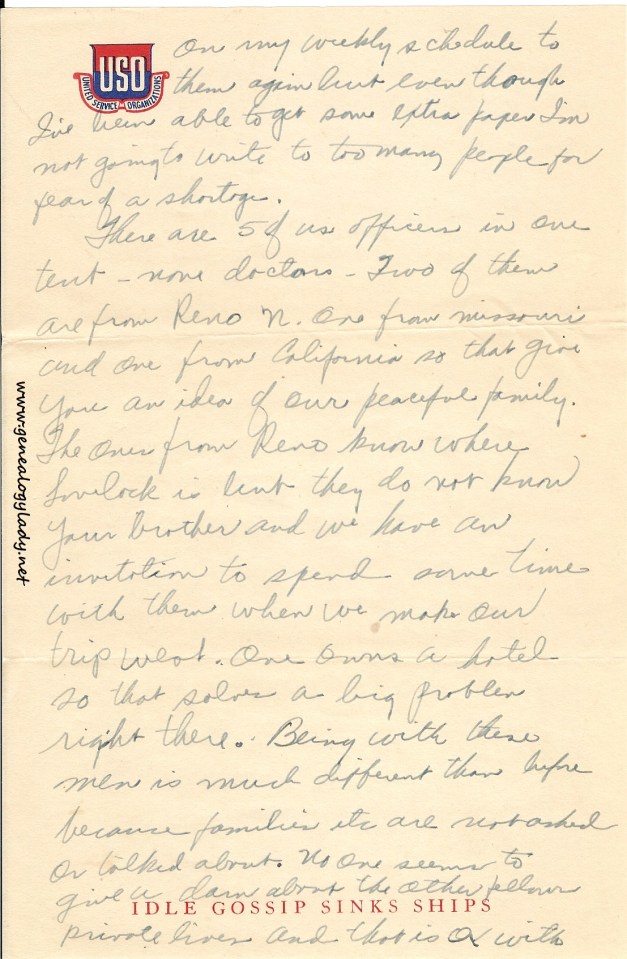 USO
UNITED SERVICE ORGANIZATIONS
On my weekly schedule to
them again but even though
I've been able to get some extra paper I'm
not going to write to too many people for
fear of a shortage.
There are 5 of us officers in one
tent - none doctors - Two of them
are from Reno N. One from Missouri
and one from California so that give
you an idea of our peaceful family.
The ones from Reno know where
Lovelock is but they do not know
your brother and we have an
invitation to spend some time
with them when we make our
trip west. One owns a hotel
so that solves a big problem
right there. Being with these
men is much different than before
because families etc are not asked
or talked about. No one seems to
give a darn about the other fellows
IDLE GOSSIP SINKS SHIPS
private lives and that is OK with
www.genealogylady.net